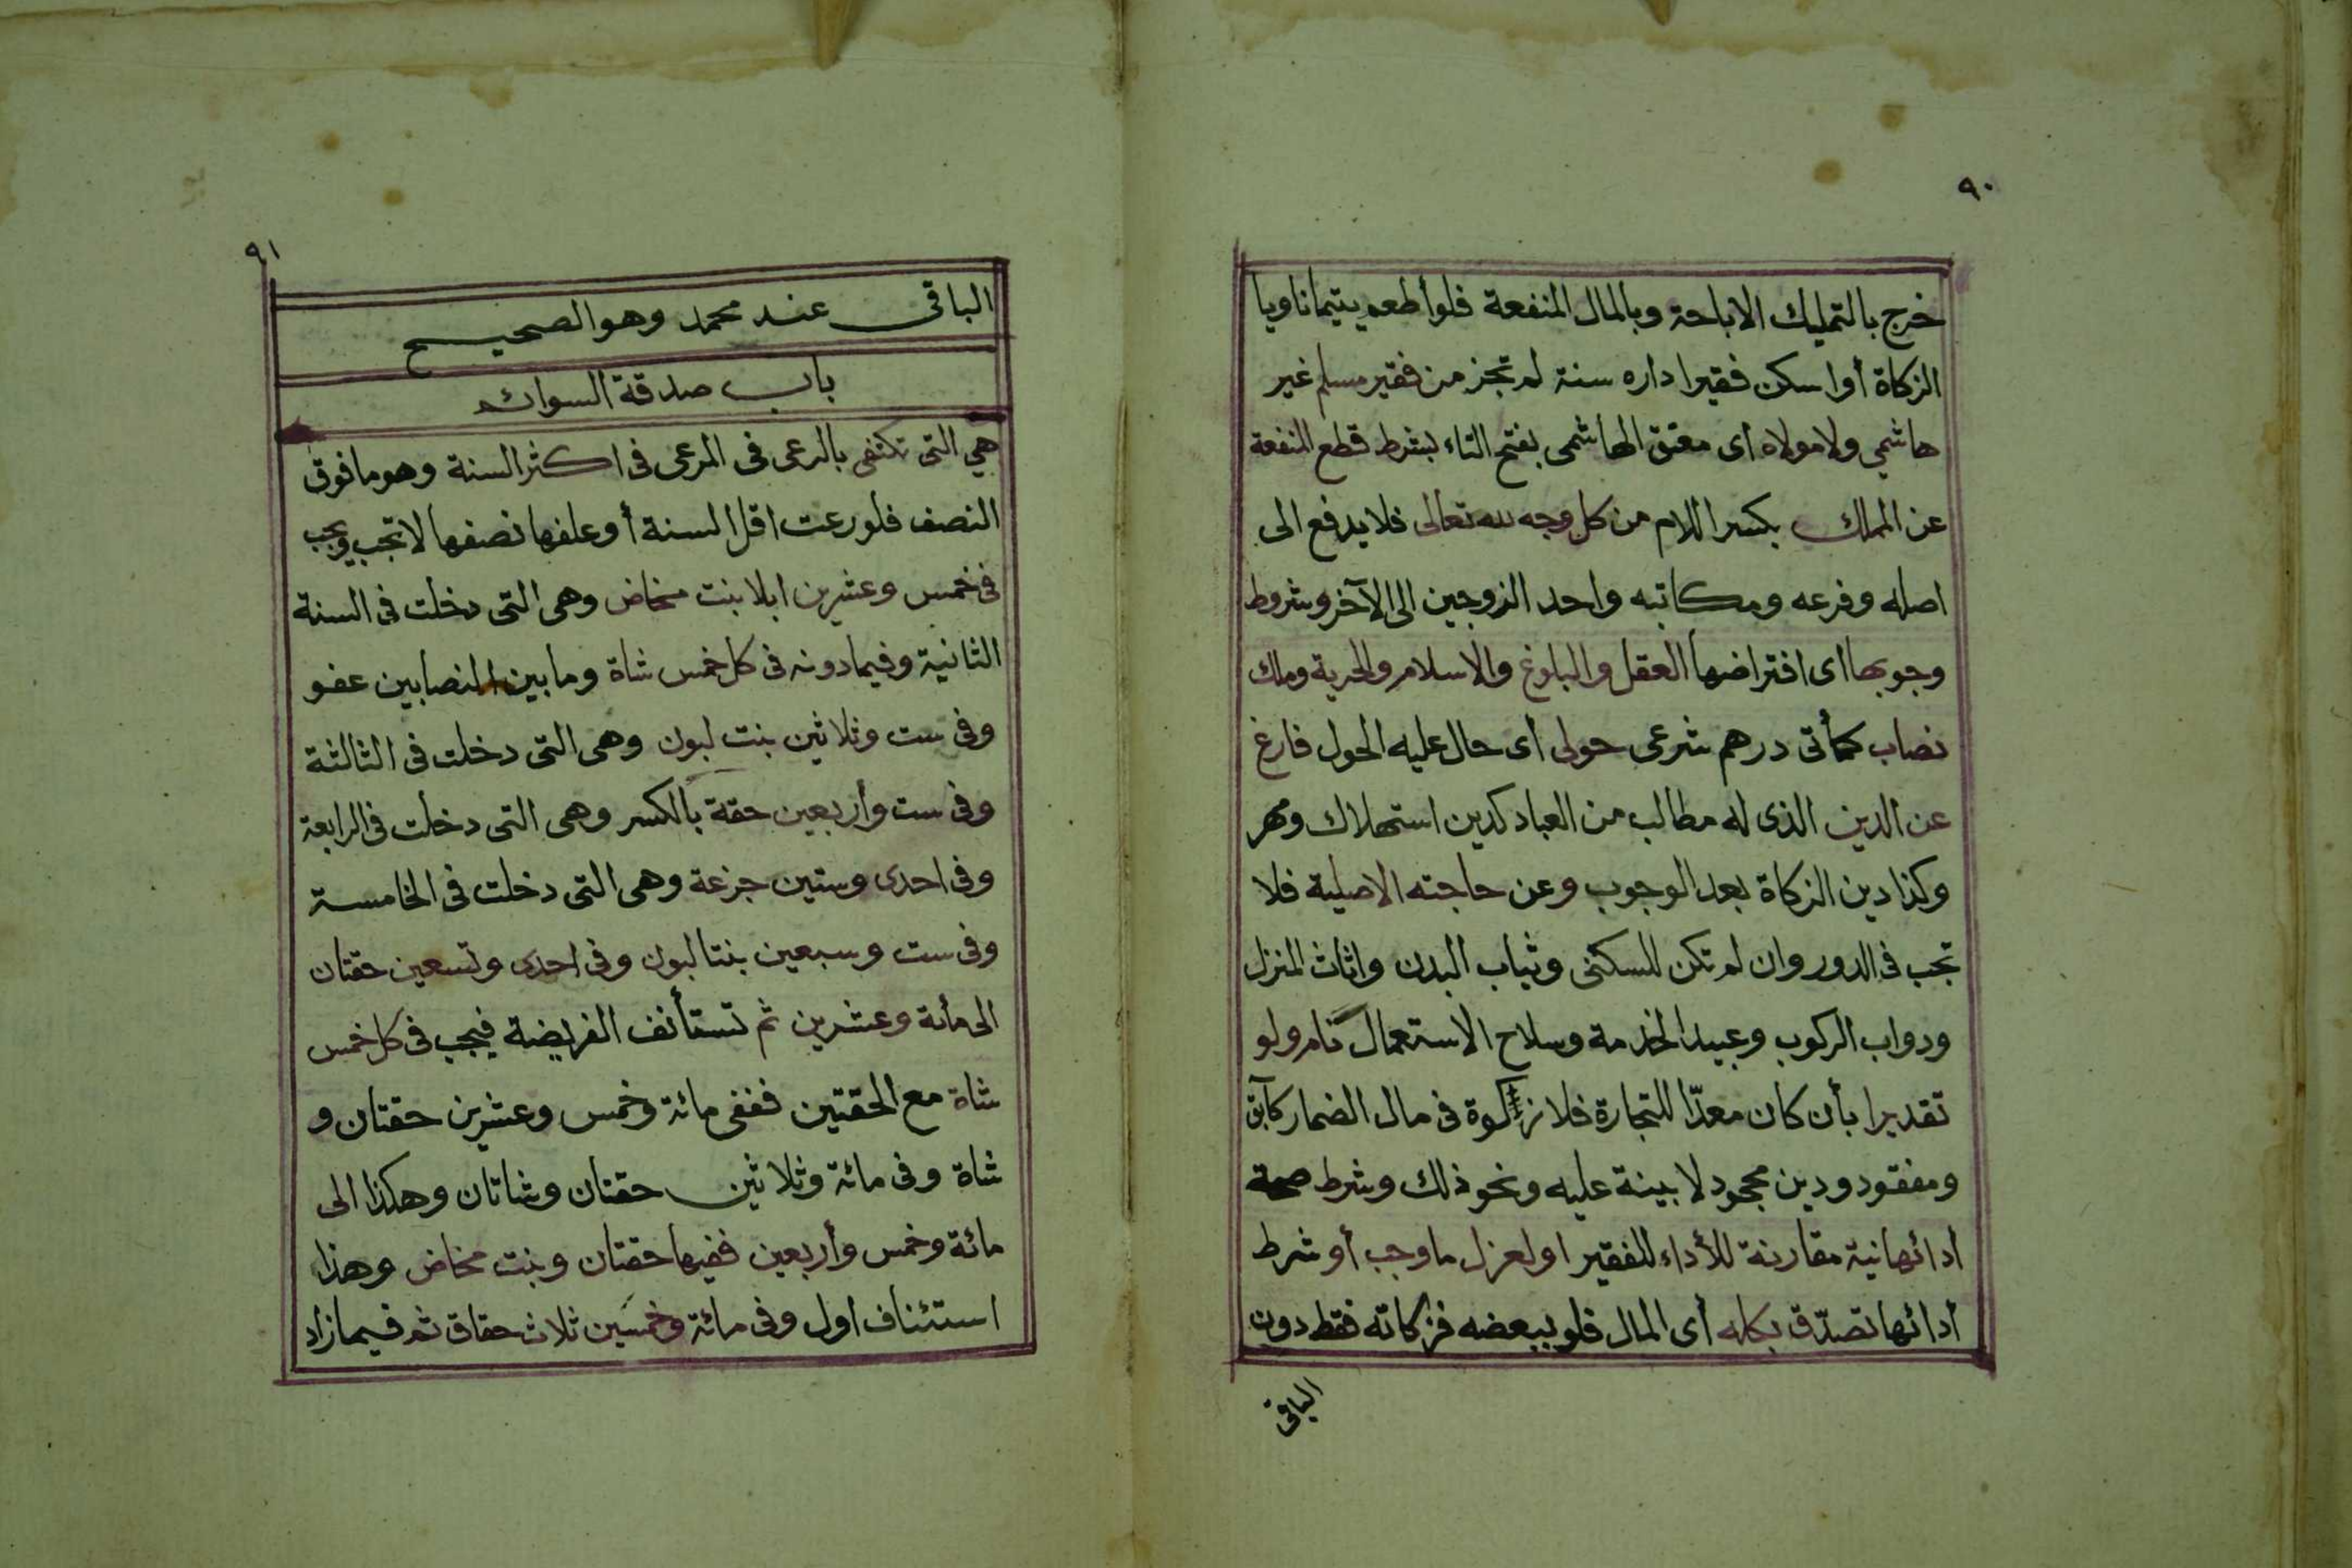 ٩٠
خرج بالتمليك الاباحة وبالمال المنفعة فلو أطعم يتيما ناويا
الزكاة أوا سكن فقيرا داره سنة لم تجز من فقير مسلم غير
هاشمي ولا مولاه اى معتق الهاشمى بفتح التاء بشرط قطع المنفعة
عن المملك بكسر اللام من كل وجه لله تعالى فلا يدفع الى
اصله وفرعه ومكاتبه واحد الزوجين الى الآخر وشروط
وجوبها اى افتراضها العقل والبلوغ والاسلام والحرية وملك
نصاب كمأتى درهم شرعى حولى أى حال عليه الحول فارغ
عن الدين الذى له مطالب من العباد كدين استهلاك ومهر
وكذا دين الزكاة بعد الوجوب وعن حاجته الاصلية فلا
تجب فى الدور وان لم تكن للسكنى وثياب البدن واثاث المنزل
ودواب الركوب وعبيد الخدمة وسلاح الاستعمال نام ولو
تقديرا بأن كان معدّا للتجارة فلا زكوة فى مال الضمار كآبق
ومفقود ودين مجحود لا بينة عليه ونحو ذلك وشرط صحة
أدائها نية مقارنة للأداء للفقير او لعزل ما وجب أو شرط
أدائها تصدّق بكله أى المال فلو ببعضه فزكاته فقط دون
الباقى
٩١
الباقى عند محمد وهو الصحيح
باب صدقة السوائم
هي التى تكتفى بالرعى فى المرعى فى اكثر السنة وهو ما فوق
النصف فلو رعت اقل السنة أو علفها نصفها لا تجب ويجب
فى خمس وعشرين ابلا بنت مخاض وهى التى دخلت فى السنة
الثانية وفيما دونه فى كل خمس شاة وما بين النصابين عفو
وفى ست وثلاثين بنت لبون وهى التى دخلت فى الثالثة
وفى ست وأربعين حقة بالكسر وهى التى دخلت فى الرابعة
وفى احدى وستين جزعة وهى التى دخلت فى الخامسة
وفى ست وسبعين بنتا لبون وفى احدى وتسعين حقتان
الى مأئة وعشرين ثم تستأنف الفريضة فيجب فى كل خمس
شاة مع الحقتين ففى مائة وخمس وعشرين حقتان و
شاة وفى مائة وثلاثين حقتان وشاتان وهكذا الى
مائة وخمس وأربعين ففيها حقتان وبنت مخاض وهذا
استئناف اول وفى مائة وخمسين ثلاث حقاق ثم فيما زاد